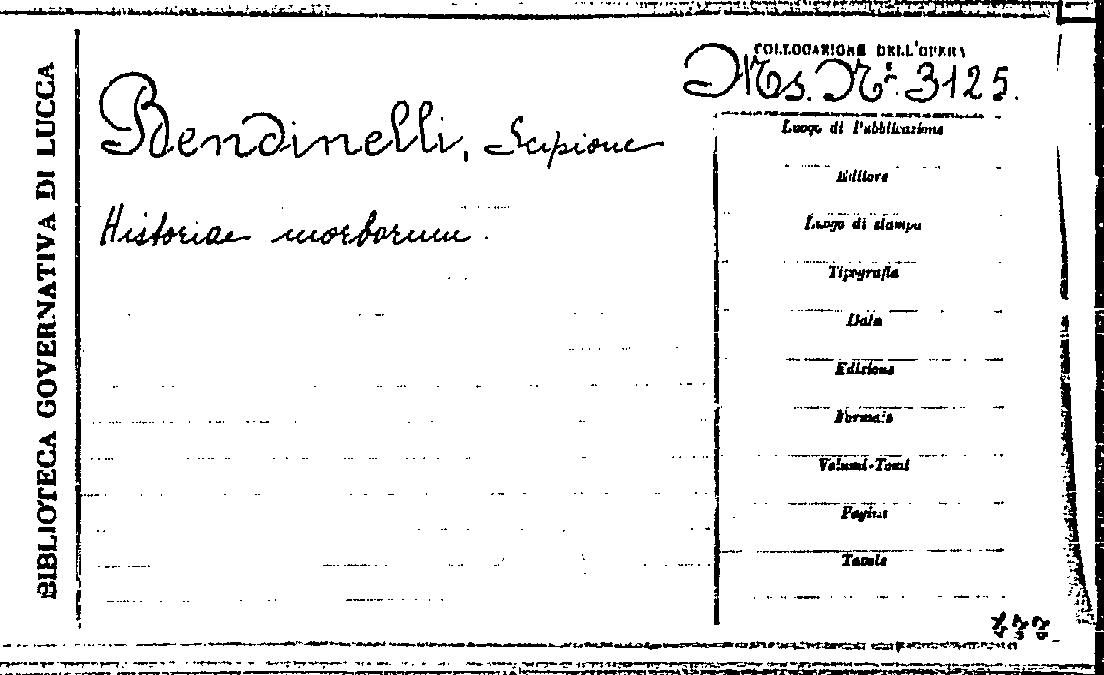 BIBLIOTECA GOVERNATIVA DI LUCCA
COLLOCAZIONE DELL'OPERA
Ms. N.º 3125.
Bendinelli, Scipione
Historiae morborum.
Luogo di Pubblicazione
Editore
Luogo di stampa
Tipografia
Data
Edizione
Formato
Volumi-Tomi
Pagine
Tavole